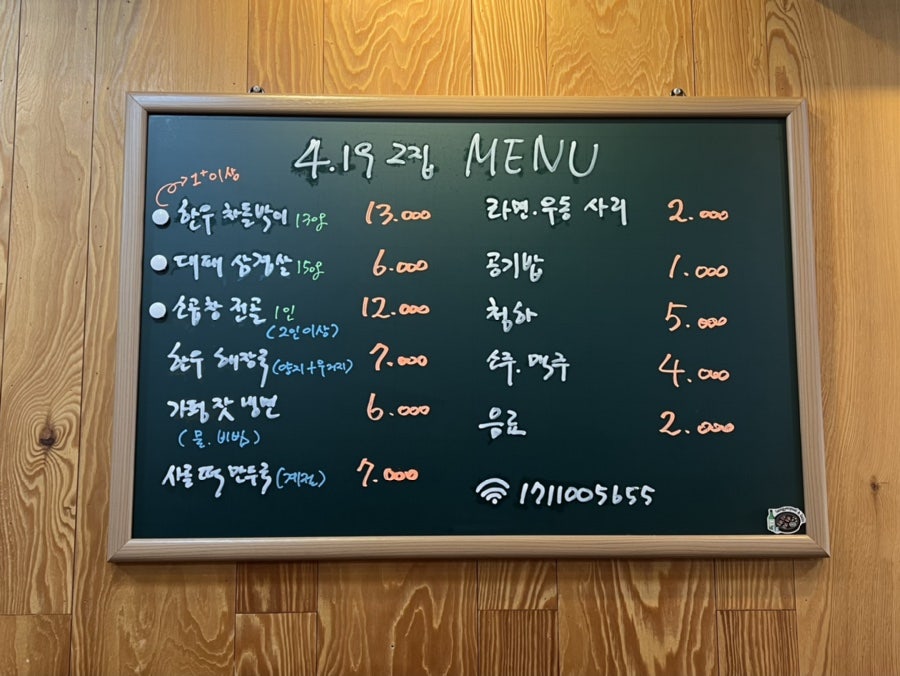 4.19 그집 MENU
1+이상
한우 차돌박이 130g 13.000
대패 삼겹살 150g 6.000
소곱창 전골 1인 12.000
(2인이상)
한우 해장국 (양지+우거지) 7.000
가평 잣 냉면 6.000
(물.비빔)
사골 떡 만두국 (계절) 7.000
라면.우동 사리 2.000
공기밥 1.000
청하 5.000
소주.맥주 4.000
음료 2.000
1711005655